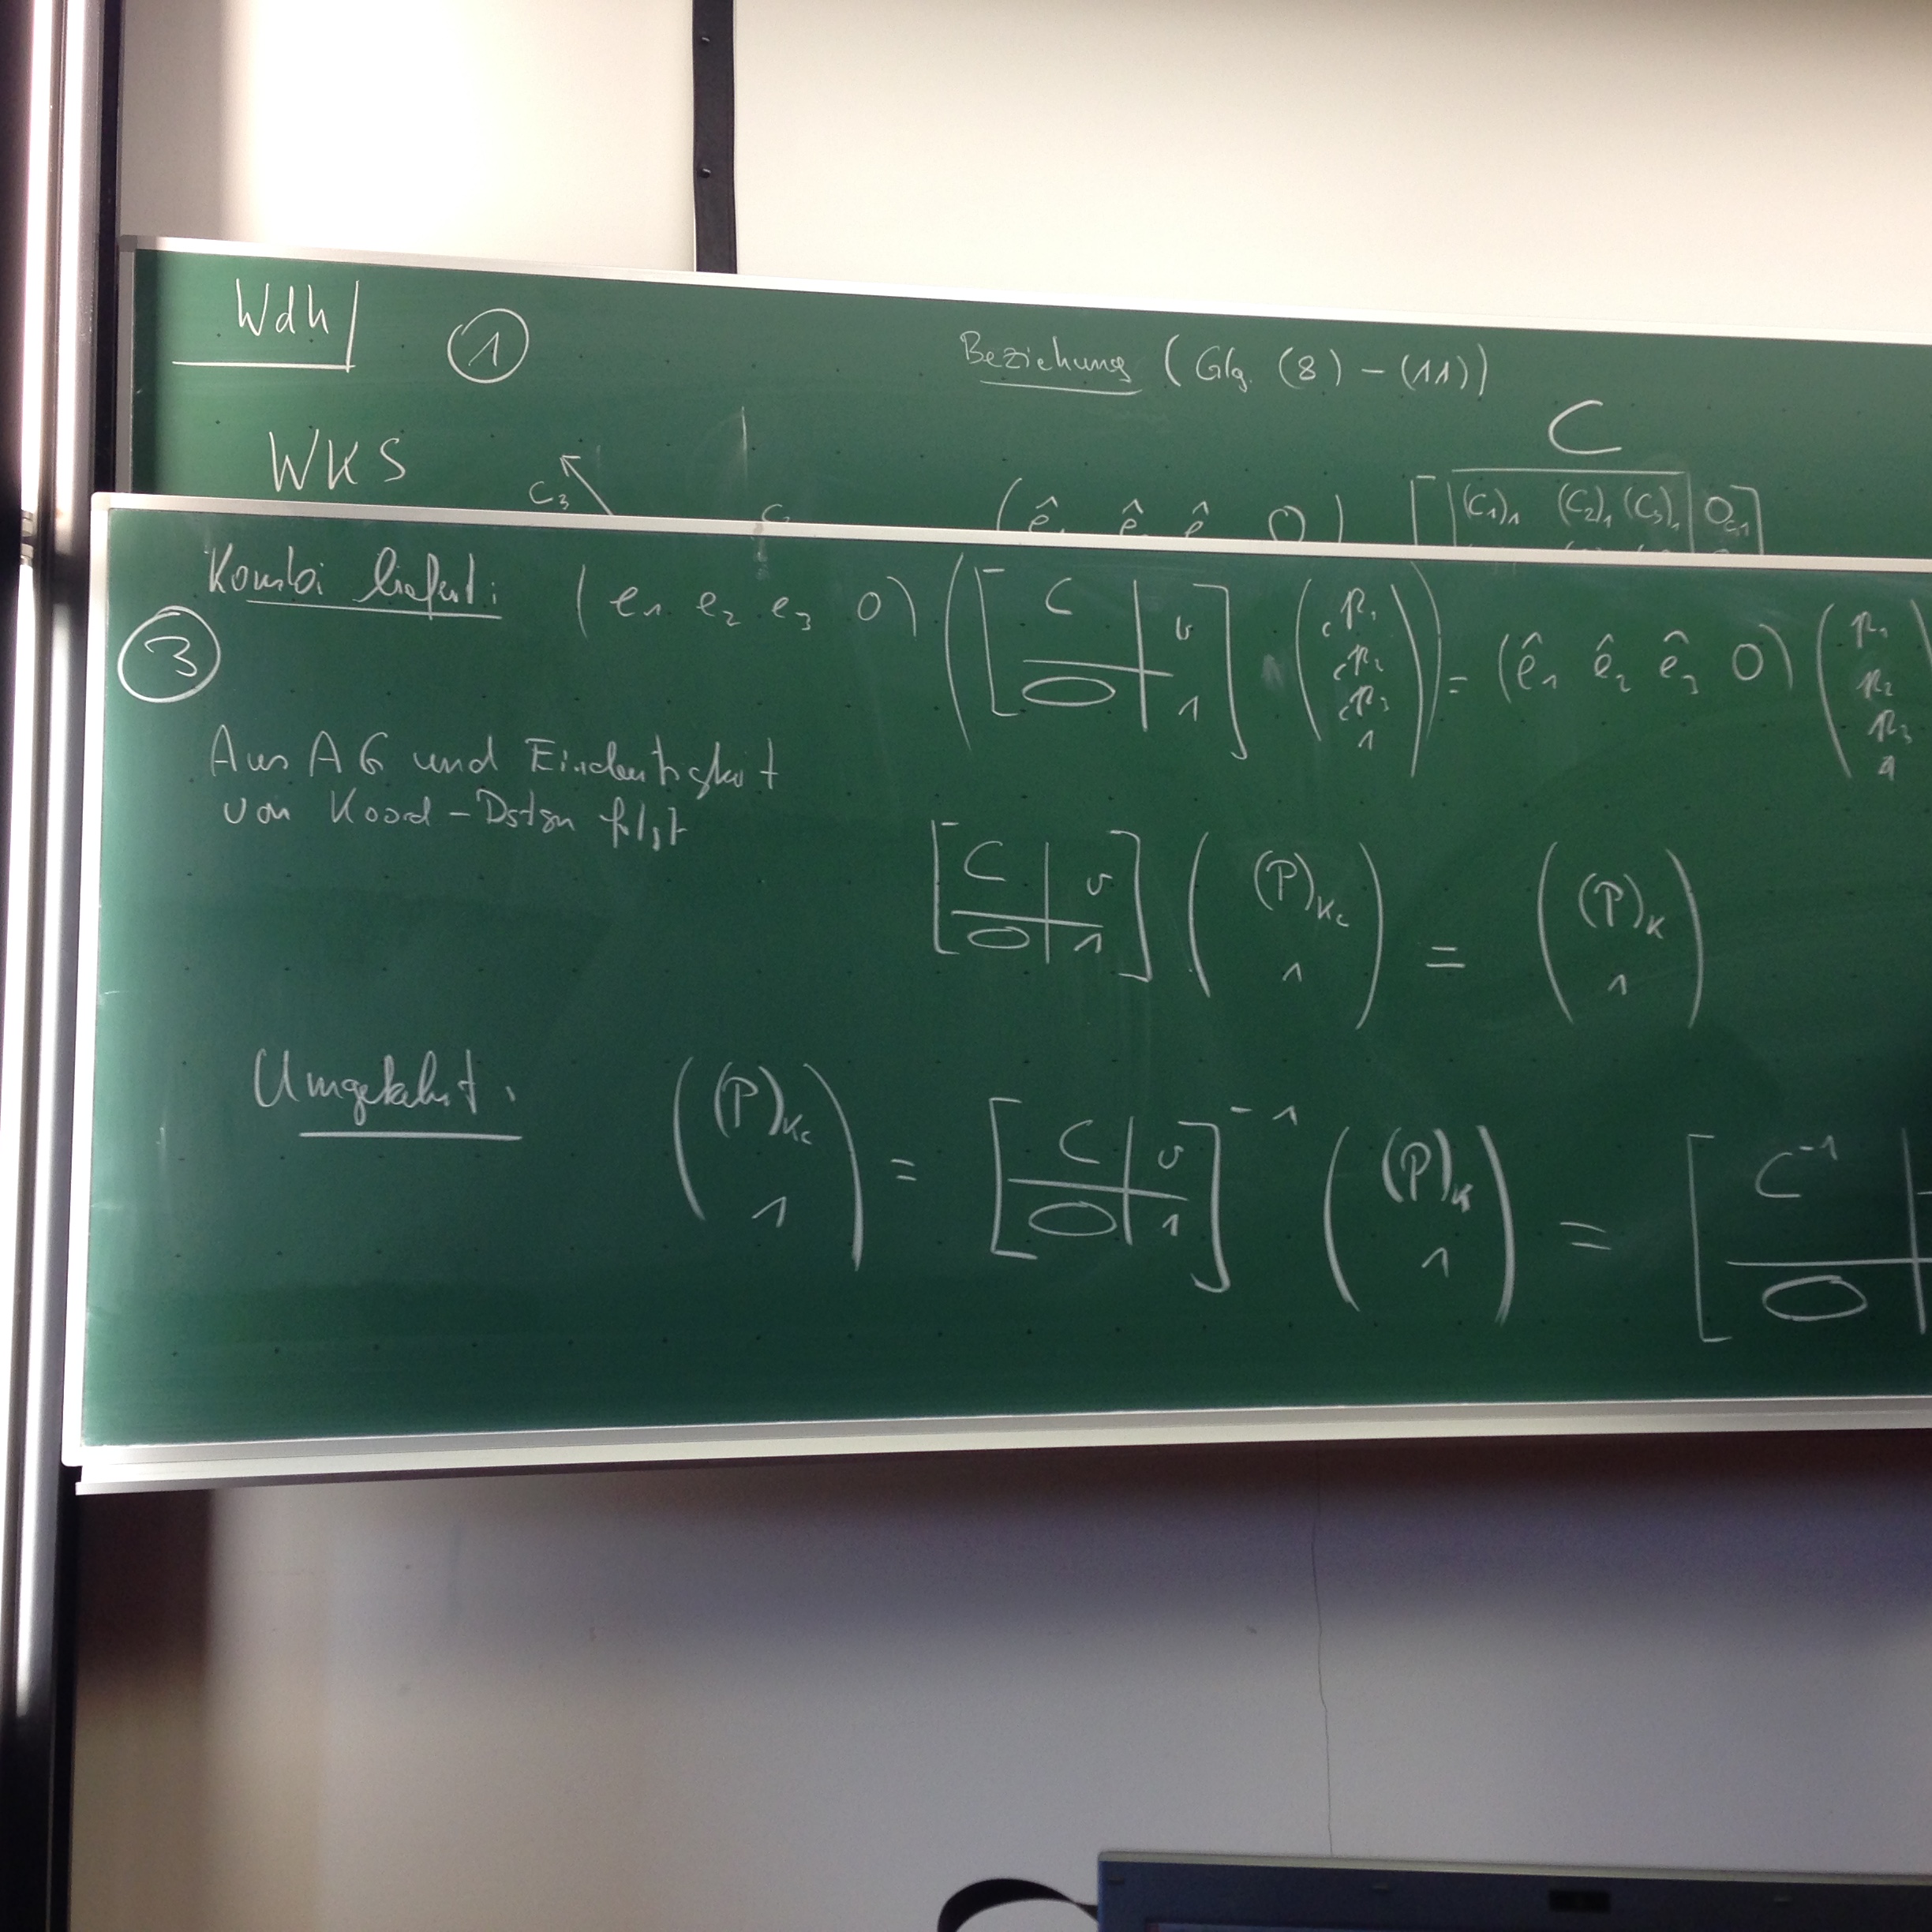 Wdh
① Beziehung (Glg. (8) – (11))
WKS
C
C₃
(ê ê ê O) [ (C₁)₁ (C₂)₁ (C₃)₁ | O_C1 ]
Kombi liefert: (e₁ e₂ e₃ O) ([C | v; O | 1] (cp₁ cp₂ cp₃ 1)) = (ê₁ ê₂ ê₃ O) (p₁ p₂ p₃ 1
③
Aus AG und Eindeutigkeit
von Koord-Dstgn folgt
[C | v; O | 1] ((P)_Kc 1) = ((P)_K 1)
Umgekehrt: ((P)_Kc 1) = [C | v; O | 1]⁻¹ ((P)_K 1) = [C⁻¹ | O